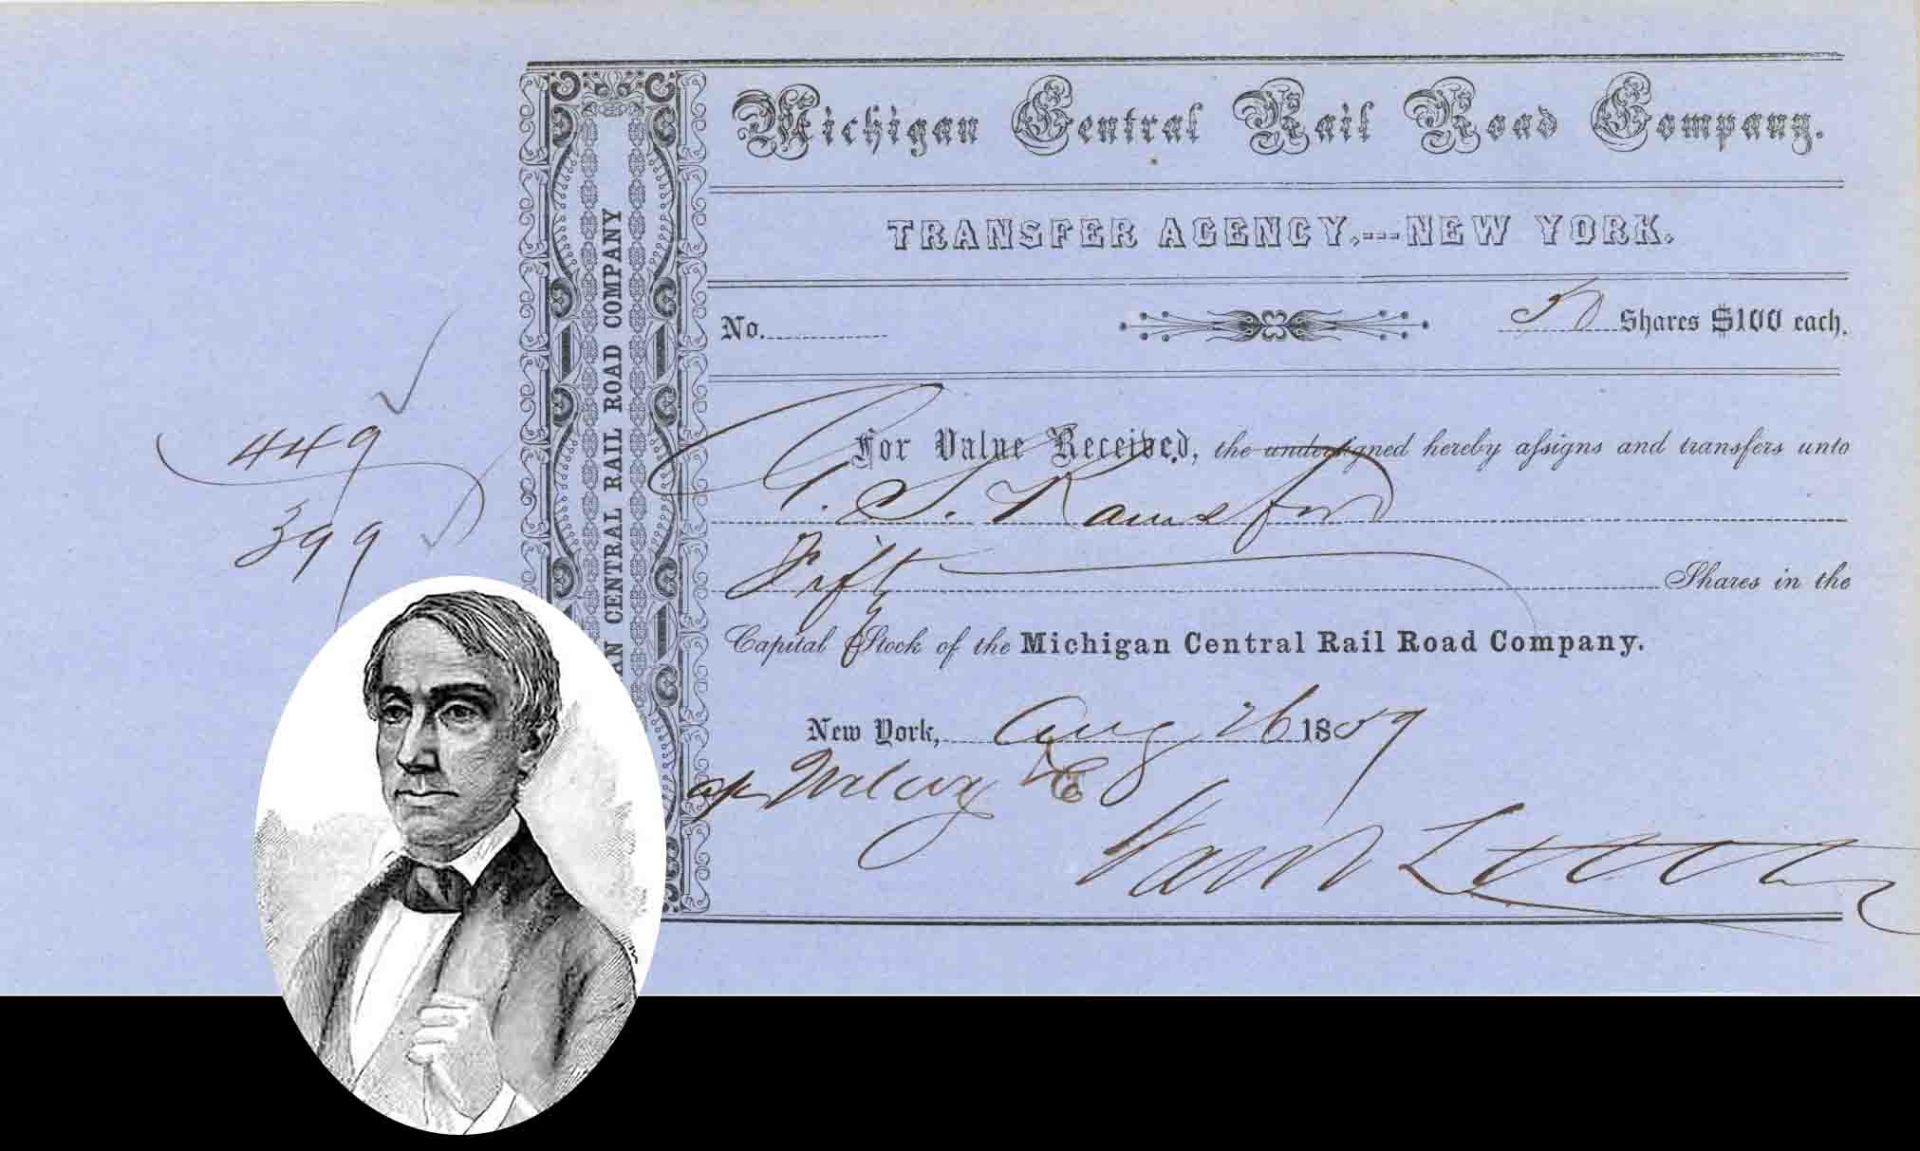 Michigan Central Rail Road Company.
TRANSFER AGENCY.---NEW YORK.
No.
50 Shares $100 each.
For Value Received, the undersigned hereby assigns and transfers unto
G. S.
Fifty Shares in the
Capital Stock of the Michigan Central Rail Road Company.
New York, Aug 26 1859
Wilcox & Co
449
399
AN CENTRAL RAIL ROAD COMPANY